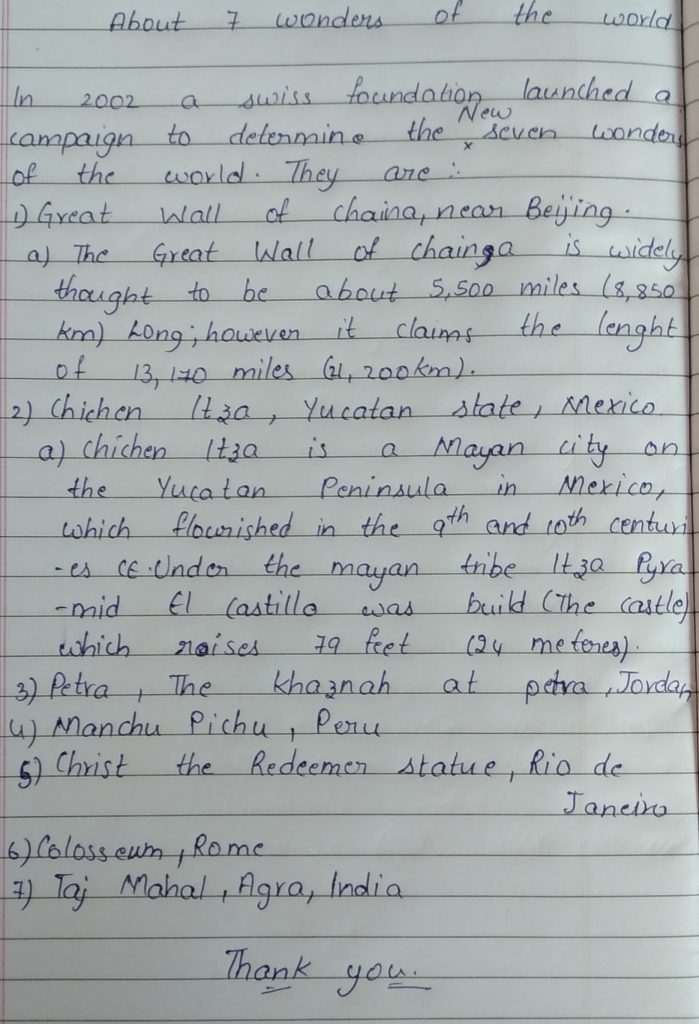 About 7 wonders of the world
In 2002 a swiss foundation launched a
campaign to determine the New seven wonders
of the world. They are :
1) Great Wall of chaina, near Beijing.
a) The Great Wall of chainga is widely
thought to be about 5,500 miles (8,850
km) Long; however it claims the lenght
of 13,170 miles (21,200km).
2) Chichen Itza, Yucatan state, Mexico.
a) Chichen Itza is a Mayan city on
the Yucatan Peninsula in Mexico,
which flourished in the 9th and 10th centuri
-es CE. Under the mayan tribe Itza Pyra
-mid El Castillo was build (The castle)
which raises 79 feet (24 meteres).
3) Petra, The khaznah at petra, Jordan
4) Manchu Pichu, Peru
5) Christ the Redeemer statue, Rio de
Janeiro
6) Colosseum, Rome
7) Taj Mahal, Agra, India
Thank you.